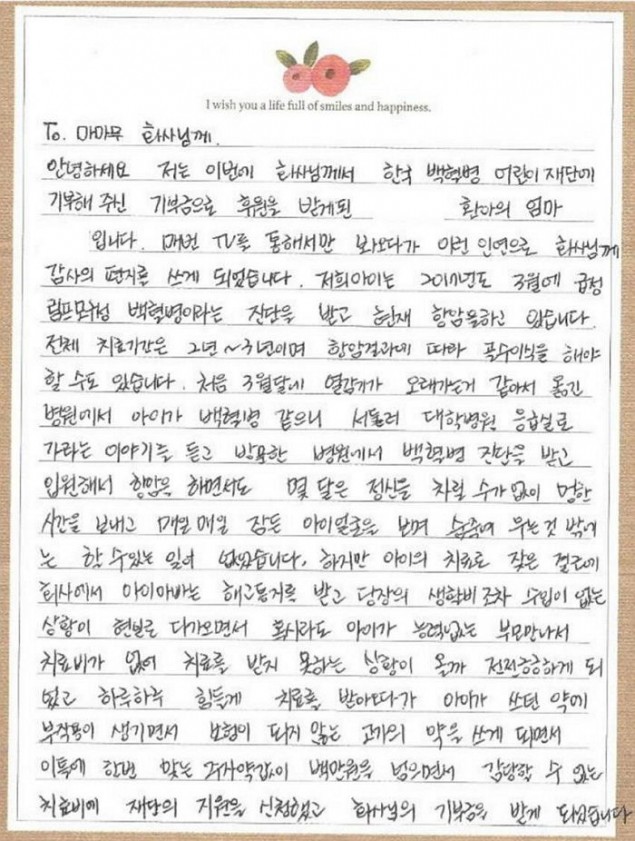 I wish you a life full of smiles and happiness.
To. 마마무 화사님께.
안녕하세요 저는 이번에 화사님께서 한국 백혈병 어린이 재단에
기부해 주신 기부금으로 후원을 받게된 환아의 엄마
입니다. 매번 TV를 통해서만 봐오다가 이런 인연으로 화사님께
감사의 편지를 쓰게 되었습니다. 저희아이는 2017년도 3월에 급성
림프모구성 백혈병이라는 진단을 받고 현재 항암을하고 있습니다.
전체 치료기간은 2년~3년이며 항암결과에 따라 골수이식을 해야
할 수도 있습니다. 처음 3월달에 열감기가 오래가는거 같아서 옮긴
병원에서 아이가 백혈병 같으니 서둘러 대학병원 응급실로
가라는 이야기를 듣고 방문한 병원에서 백혈병 진단을 받고
입원해서 항암을 하면서도 몇 달은 정신을 차릴 수가 없이 멍한
시간을 보내고 매일매일 잠든 아이얼굴을 보며 숨죽여 우는것 밖에
는 할 수있는 일이 없었습니다. 하지만 아이의 치료로 잦은 결근에
회사에서 아이아빠는 해고통지를 받고 당장의 생활비조차 수입이 없는
상황이 현실로 다가오면서 혹시라도 아이가 능력없는 부모만나서
치료비가 없어 치료를 받지 못하는 상황이 올까 전전긍긍하게 되
었고 하루하루 힘들게 치료를 받아오다가 아이가 쓰던 약에
부작용이 생기면서 보험이 되지 않는 고가의 약을 쓰게 되면서
이틀에 한번 맞는 주사약값이 백만원을 넘으면서 감당할 수 없는
치료비에 재단의 지원을 신청했고 화사님의 기부금을 받게 되었습니다